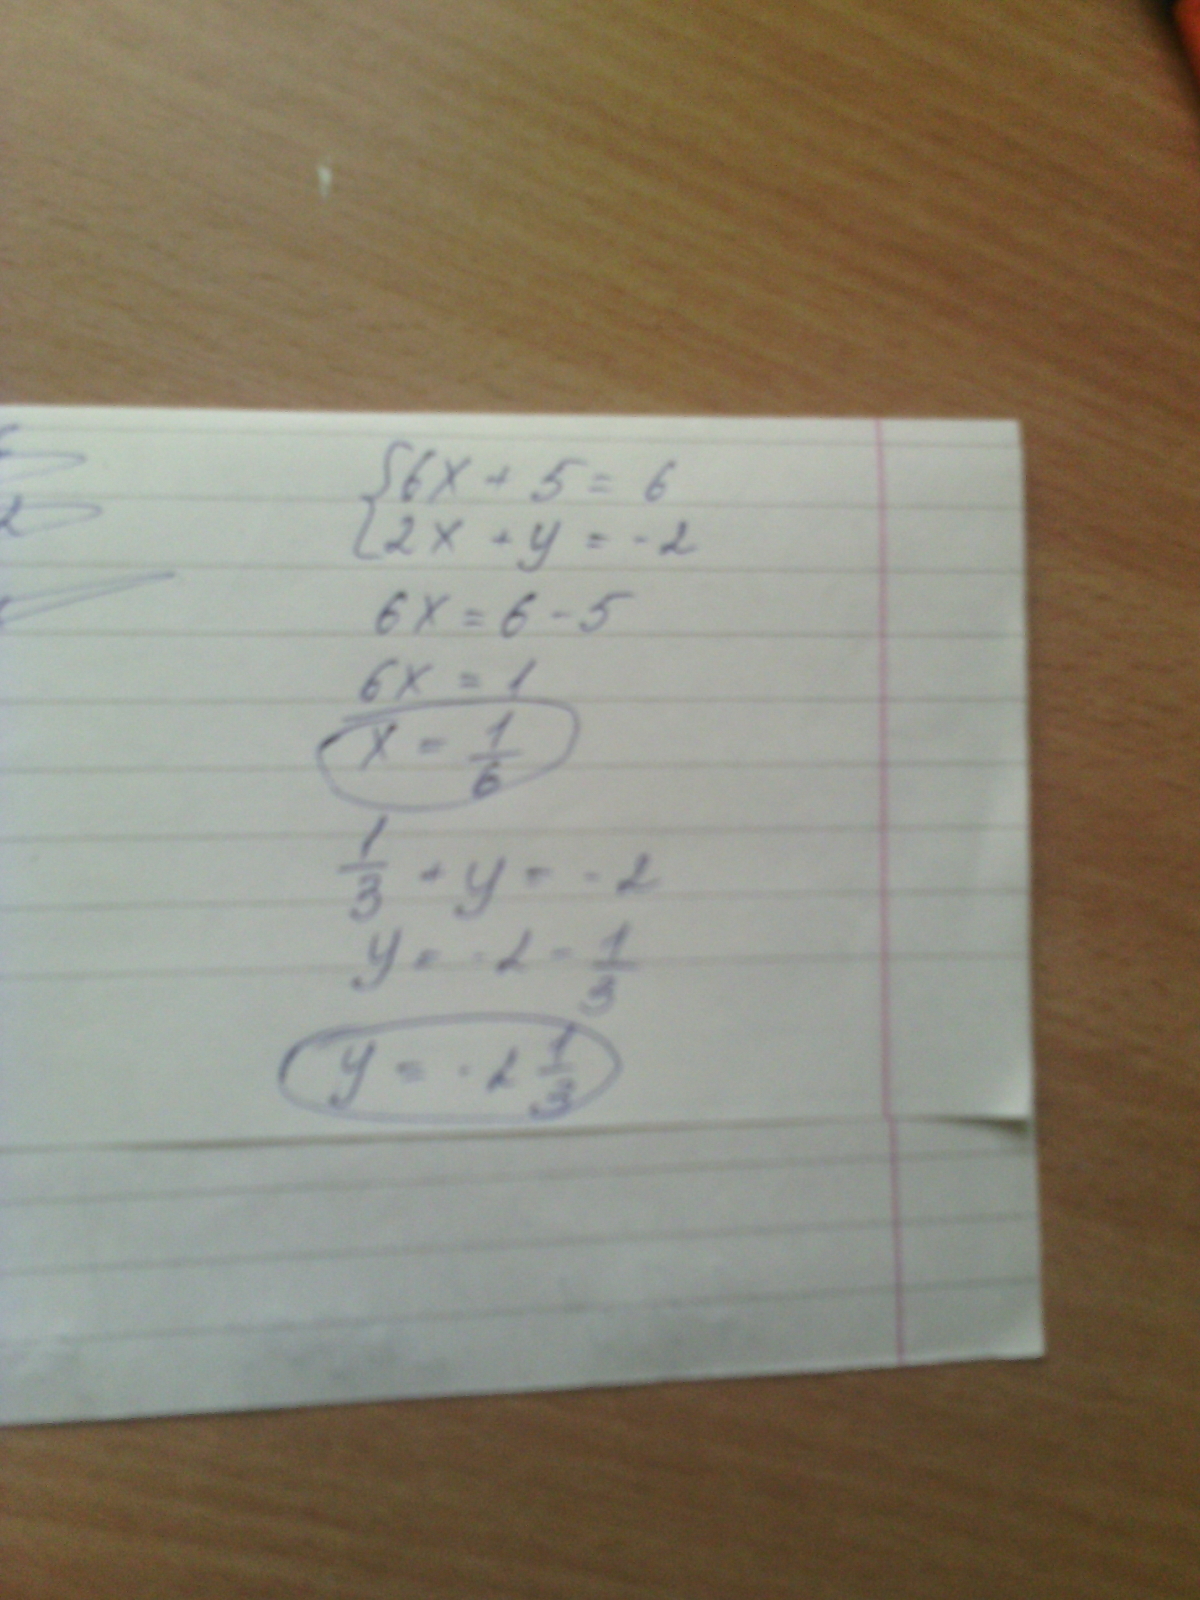 {6x + 5 = 6
2x + y = -2
6x = 6 - 5
6x = 1
x = 1/6
1/3 + y = -2
y = -2 - 1/3
y = -2 1/3